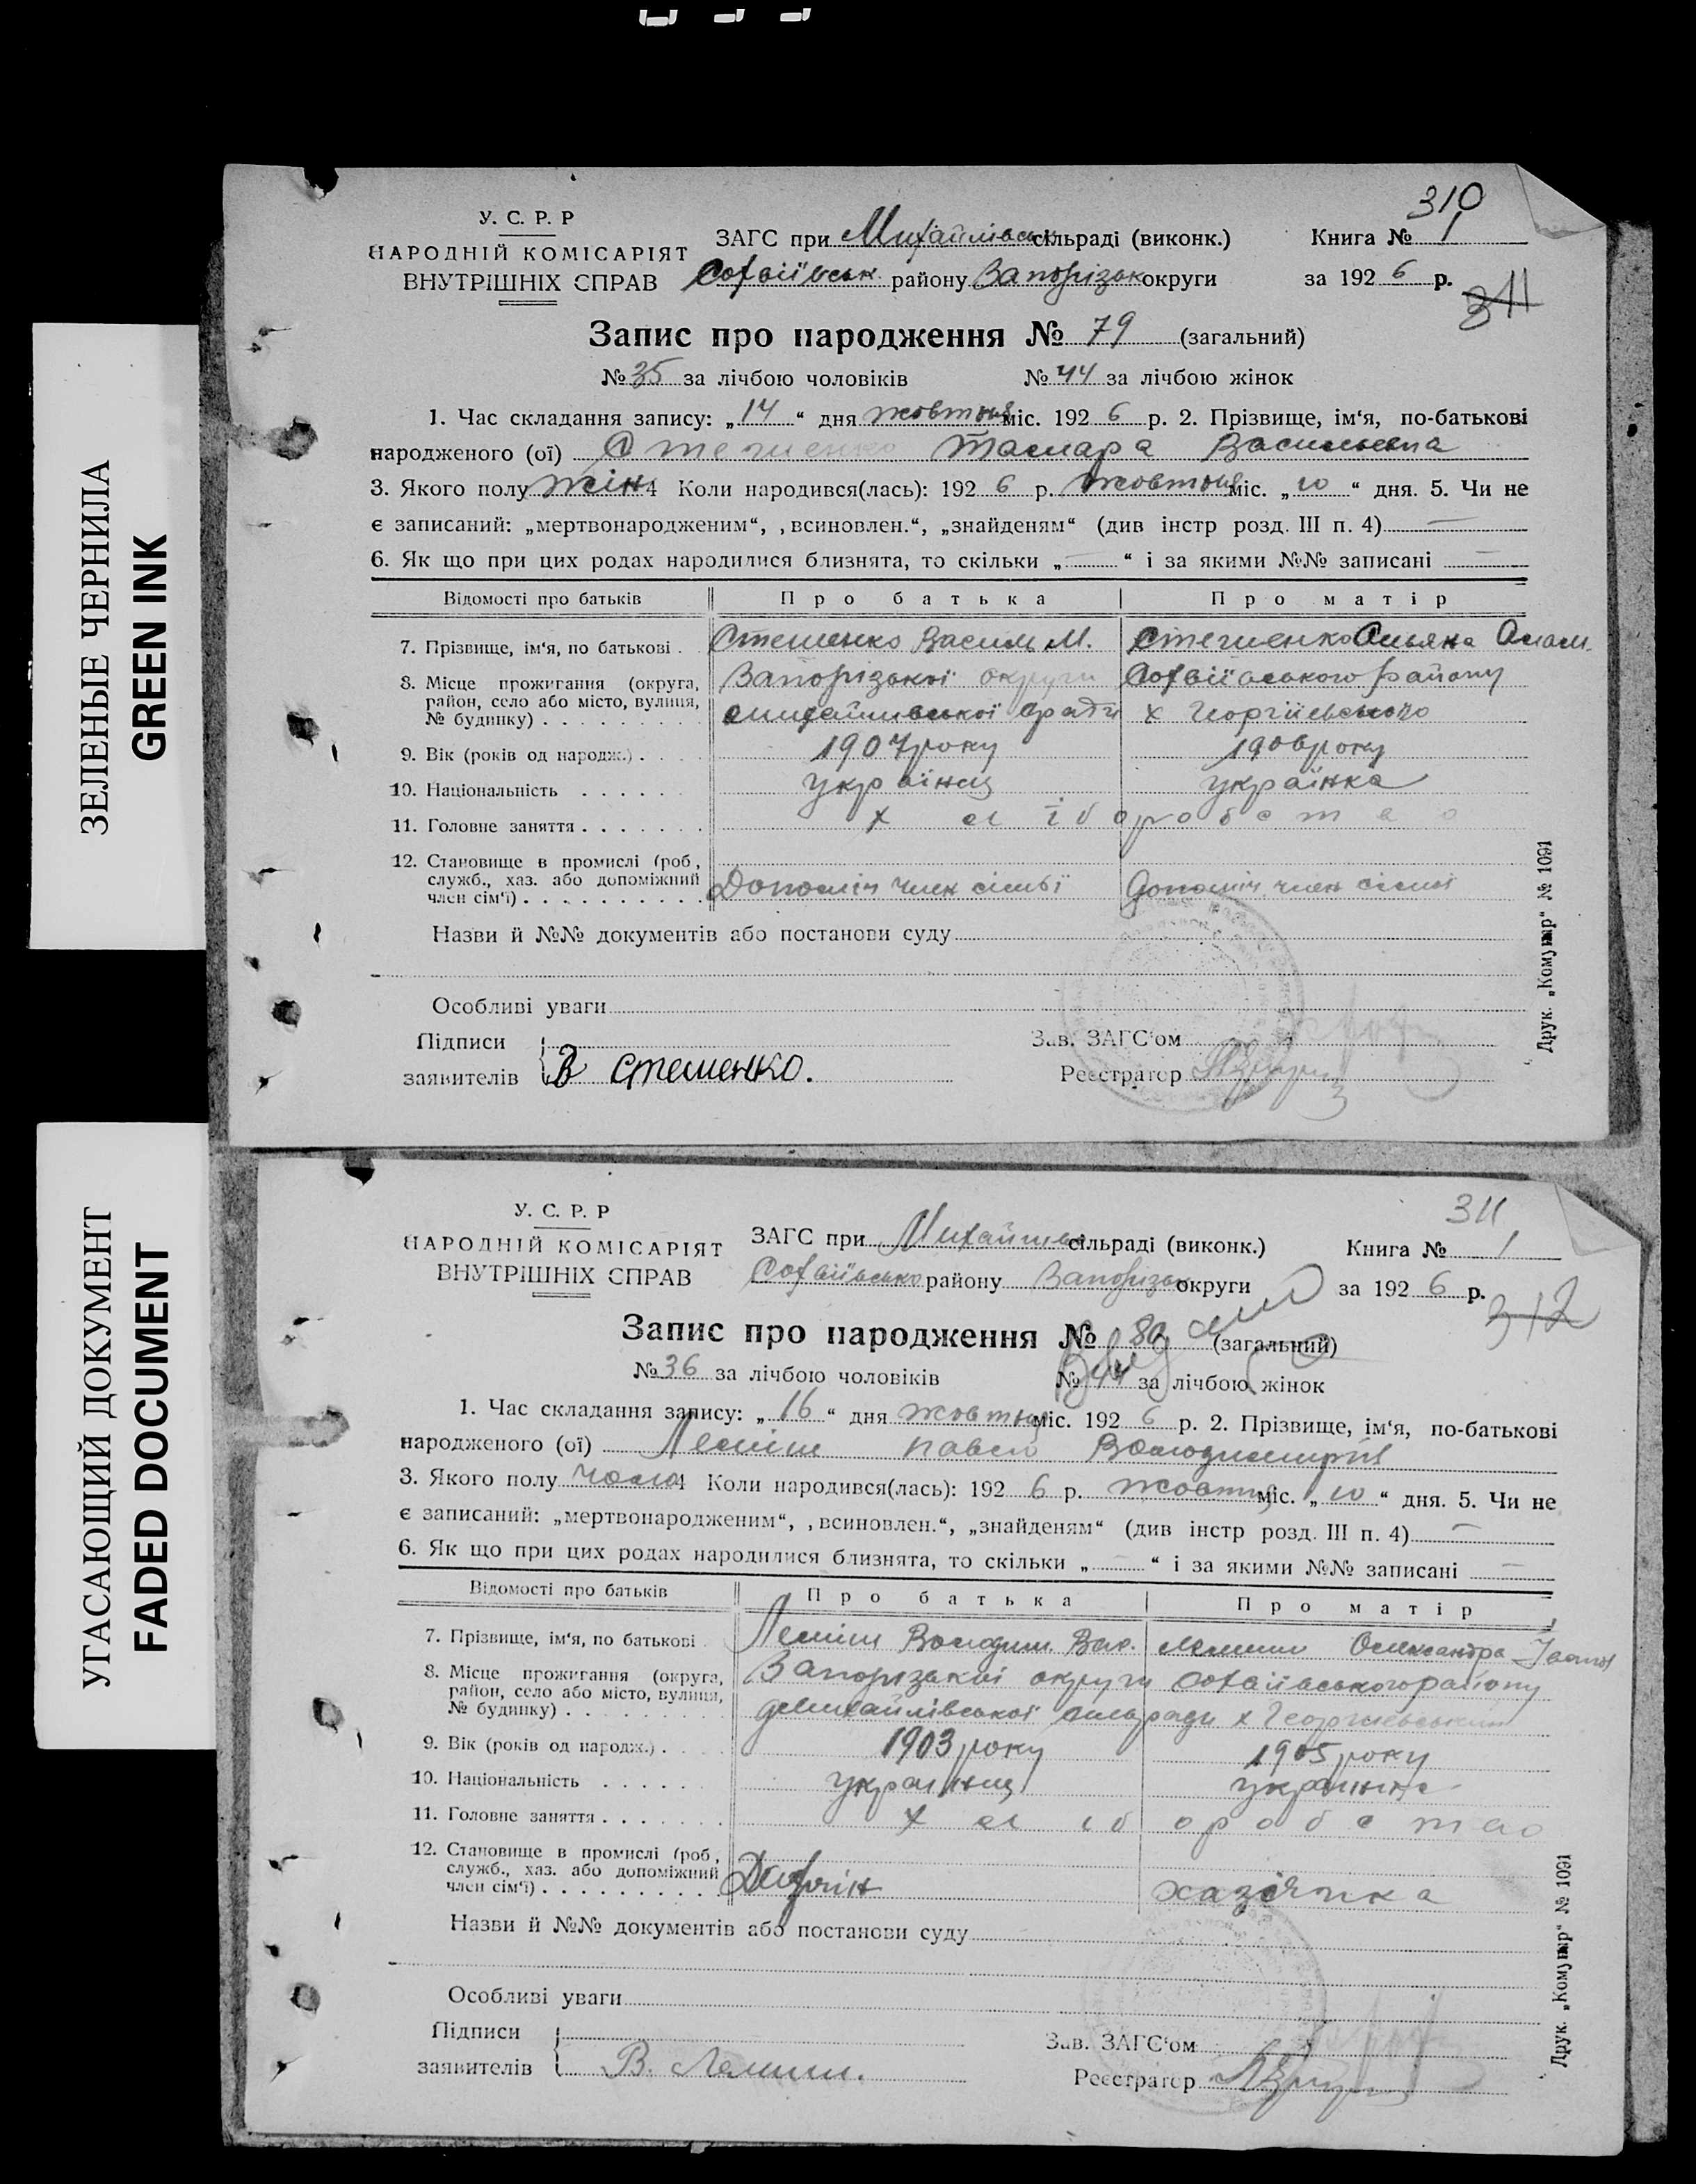 ЗЕЛЕНЫЕ ЧЕРНИЛА
GREEN INK
310
У. С. Р. Р
НАРОДНІЙ КОМІСАРІЯТ
ВНУТРІШНІХ СПРАВ
ЗАГС при Михайлівськ сільраді (виконк.)
Софіївськ району Запорізьк округи
Книга № 1
за 1926 р.
311
Запис про народження № 79 (загальний)
№ 35 за лічбою чоловіків № 44 за лічбою жінок
1. Час складання запису: „14“ дня жовтня міс. 1926 р. 2. Прізвище, ім‘я, по-батькові
народженого (ої) Стешенко Тамара Васильевна
3. Якого полу жін 4 Коли народився(лась): 1926 р. жовтня міс. „10“ дня. 5. Чи не
є записаний: „мертвонародженим“, ‚всиновлен.“, „знайденям“ (див інстр розд. III п. 4) —
6. Як що при цих родах народилися близнята, то скільки „—“ і за якими №№ записані —
Відомості про батьків Про батька Про матір
7. Прізвище, ім‘я, по батькові . Стешенко Василь М. Стешенко
8. Місце прожигання (округа, район, село або місто, вулиця, № будинку) . . . . . . . . . Запорізької округи Софіївського району
Михайлівської с/ради х Георгіївського
9. Вік (років од народж.) . . . . 1907 року 1906 року
10. Національність . . . . . . українец українка
11. Головне заняття . . . . . . . хліборобство
12. Становище в промислі (роб, служб., хаз. або допоміжний член сім‘ї) . . . . . . . . . . Допоміч член сімьї Допоміч. член сімьї
Назви й №№ документів або постанови суду
Особливі уваги
Підписи
заявителів В Стешенко.
Зав. ЗАГС‘ом
Реєстратор
Друк. „Комунар“ № 1091
УГАСАЮЩИЙ ДОКУМЕНТ
FADED DOCUMENT
311
У. С. Р. Р
НАРОДНІЙ КОМІСАРІЯТ
ВНУТРІШНІХ СПРАВ
ЗАГС при Михайлів сільраді (виконк.)
Софіївсько району Запорізьк округи
Книга № 1
за 1926 р.
312
Запис про народження № 80 (загальний)
№ 36 за лічбою чоловіків № 44 за лічбою жінок
1. Час складання запису: „16“ дня жовтня міс. 1926 р. 2. Прізвище, ім‘я, по-батькові
народженого (ої) Леміш Павло Володимирів
3. Якого полу чолов 4 Коли народився(лась): 1926 р. жовтня міс. „10“ дня. 5. Чи не
є записаний: „мертвонародженим“, ‚всиновлен.“, „знайденям“ (див інстр розд. III п. 4) —
6. Як що при цих родах народилися близнята, то скільки „—“ і за якими №№ записані —
Відомості про батьків Про батька Про матір
7. Прізвище, ім‘я, по батькові . Леміш Володим. Леміш Олександра Іванов
8. Місце прожигання (округа, район, село або місто, вулиця, № будинку) . . . . . . . . . Запорізької округи Софіївського району
Михайлівської сільради х Георгиевський
9. Вік (років од народж.) . . . . 1903 року 1905 року
10. Національність . . . . . . украинец украинка
11. Головне заняття . . . . . . . хліборобство
12. Становище в промислі (роб, служб., хаз. або допоміжний член сім‘ї) . . . . . . . . . хазяйка
Назви й №№ документів або постанови суду
Особливі уваги
Підписи
заявителів В. Лемиш.
Зав. ЗАГС‘ом
Реєстратор
Друк. „Комунар“ № 1091